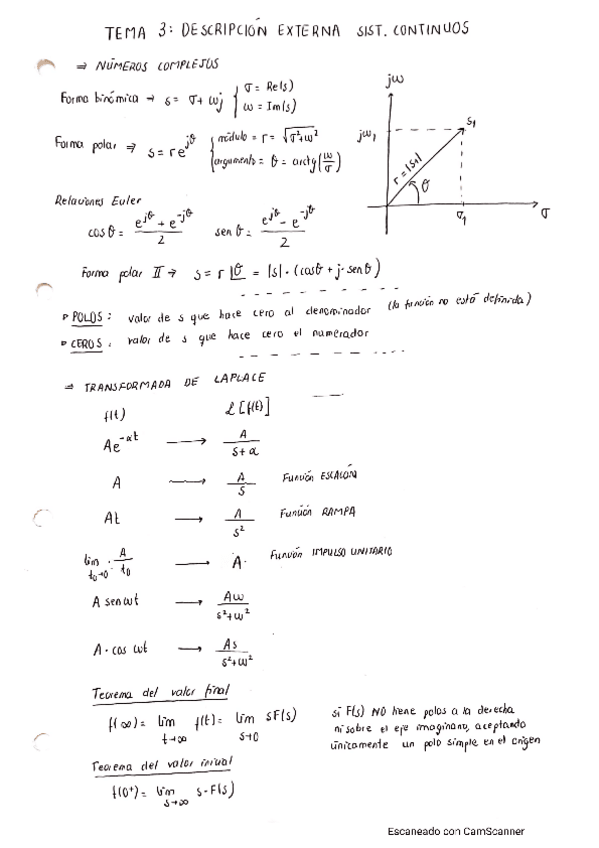 TEMA 3: DESCRIPCIÓN EXTERNA SIST. CONTINUOS
⇒ NÚMEROS COMPLEJOS
Forma binómica → s = σ + ωj { σ = Re(s)
ω = Im(s)
Forma polar ⇒ s = re^jθ { módulo = r = √(σ²+ω²)
argumento = θ = arctg(ω/σ)
jω
jω₁
s₁
r = |s₁|
θ
σ₁
σ
Relaciones Euler
cos θ = (e^jθ + e^-jθ)/2   sen θ = (e^jθ - e^-jθ)/2
Forma polar II → s = r∠θ = |s|·(cosθ + j·senθ)
▷ POLOS: valor de s que hace cero al denominador (la función no está definida)
▷ CEROS: valor de s que hace cero el numerador
⇒ TRANSFORMADA DE LAPLACE
f(t)   ℒ[f(t)]
Ae^-αt → A/(s+α)
A → A/s   Función ESCALÓN
At → A/s²   Función RAMPA
lim t₀→0 A/t₀ → A·   Función IMPULSO UNITARIO
A sen ωt → Aω/(s²+ω²)
A·cos ωt → As/(s²+ω²)
Teorema del valor final
f(∞) = lim t→∞ f(t) = lim s→0 sF(s)
si F(s) NO tiene polos a la derecha
ni sobre el eje imaginario, aceptando
únicamente un polo simple en el origen
Teorema del valor inicial
f(0⁺) = lim s→∞ s·F(s)
Escaneado con CamScanner